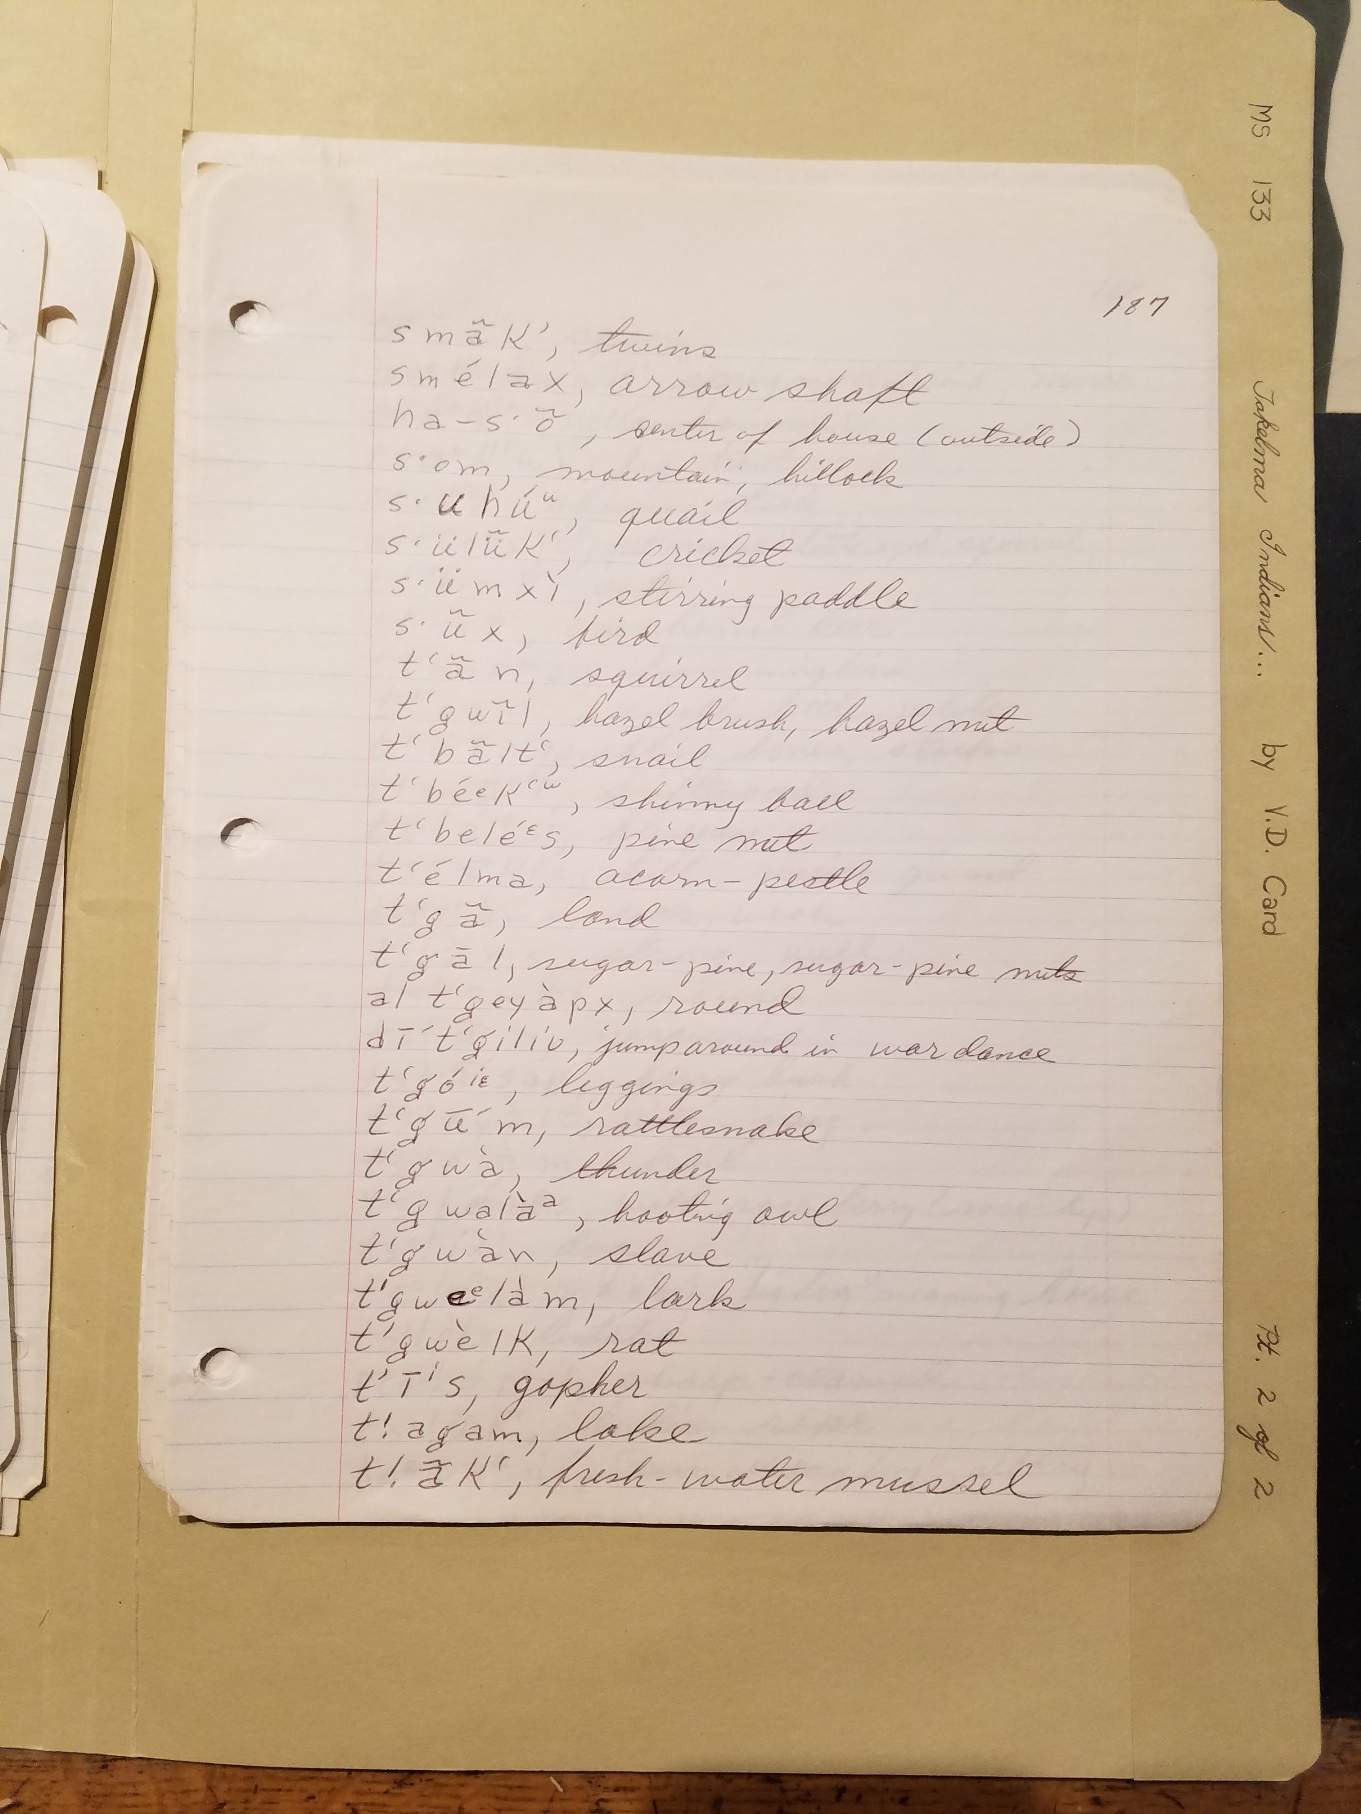 187
smã̄k', twins
smélax, arrow shaft
ha-s·ȭ, center of house (outside)
s·om, mountain, hillock
s·uhúᵘ, quail
s·ülü̃k‘, cricket
s·ümxì, stirring paddle
s·ũ̄x, bird
t‘ã̄n, squirrel
t‘gwĩ̄l, hazel brush, hazel nut
t‘bã̄lt‘, snail
t‘béᵉk‘ʷ, shinny ball
t‘belé⁽ᵋ⁾s, pine nut
t‘élma, acorn-pestle
t‘gã̄, land
t‘gāl, sugar-pine, sugar-pine nuts
al t‘geyàpx, round
dī́t‘giliu, jump around in war dance
t‘góⁱᵋ, leggings
t‘gū́m, rattlesnake
t‘gwà, thunder
t‘gwalàᵃ, hooting owl
t‘gwàn, slave
t‘gweᵉlàm, lark
t‘gwèlk, rat
t‘īⁱs, gopher
t!agam, lake
t!ã̄k‘, fresh-water mussel
MS 133 Takelma Indians... by V.D. Card Pt. 2 of 2